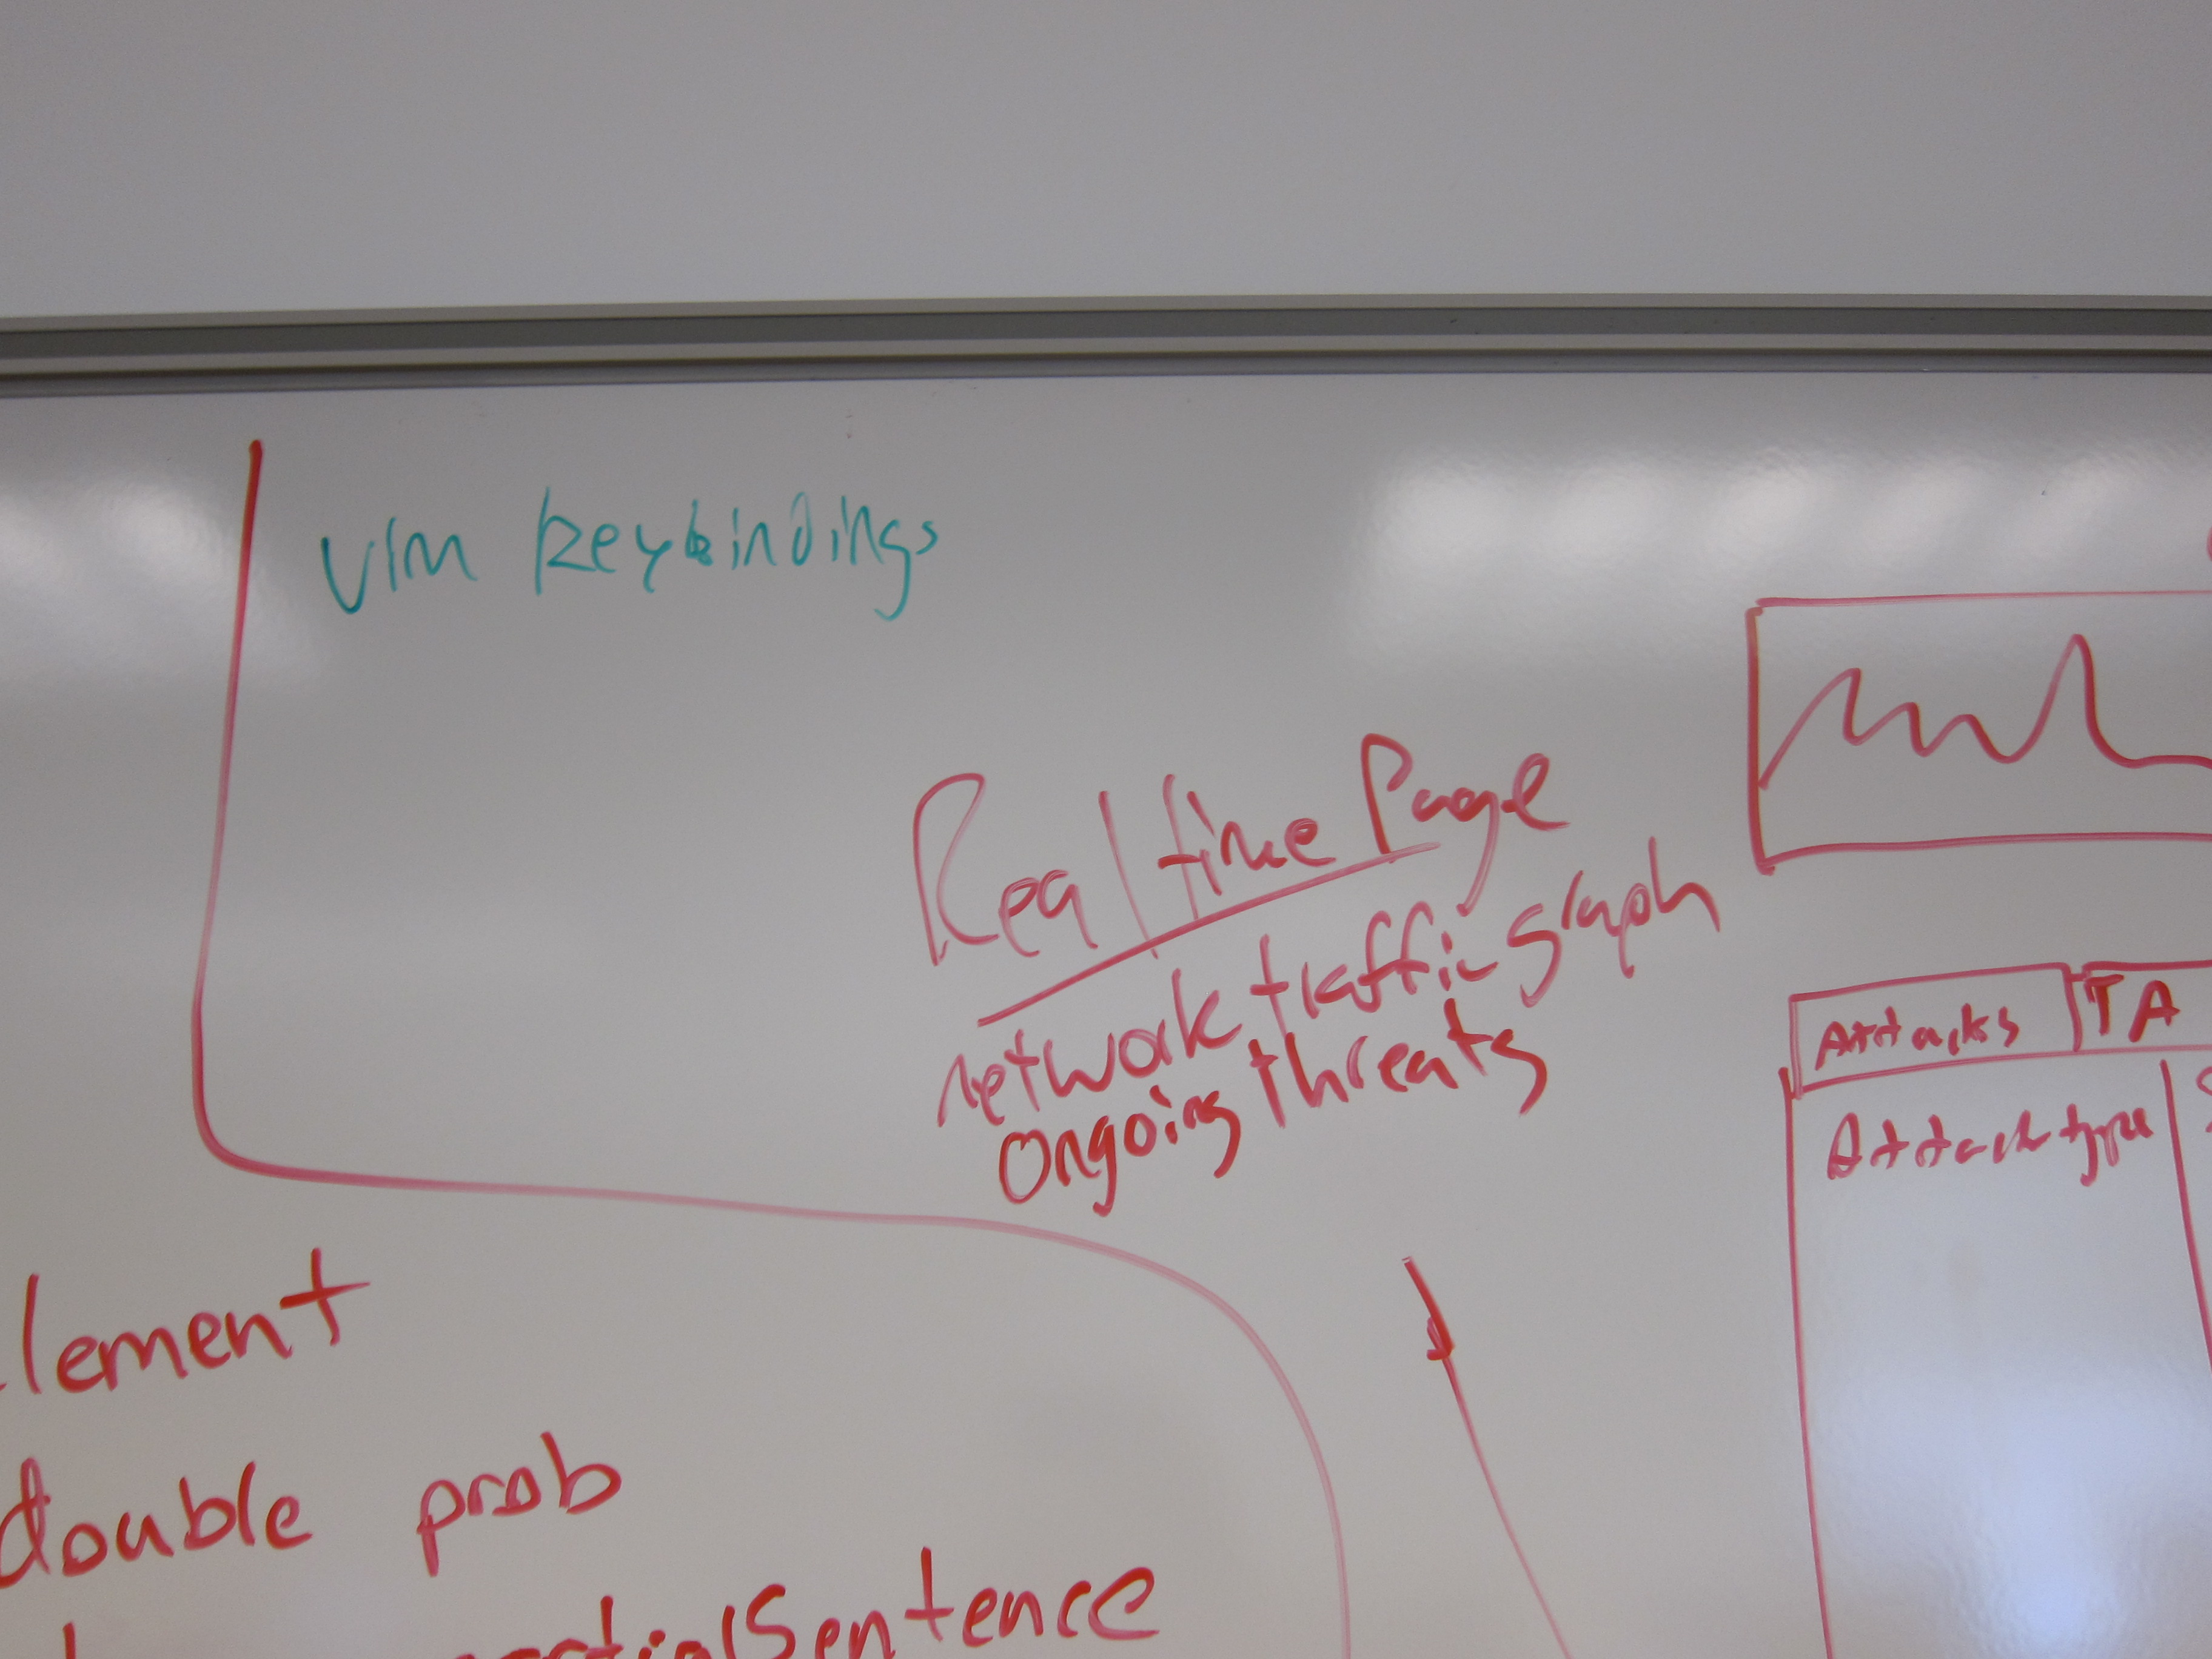 vim keybindings
Real time Page
network traffic graph
Ongoing threats
Attacks TA
Attack type
lement
double prob
partialSentence